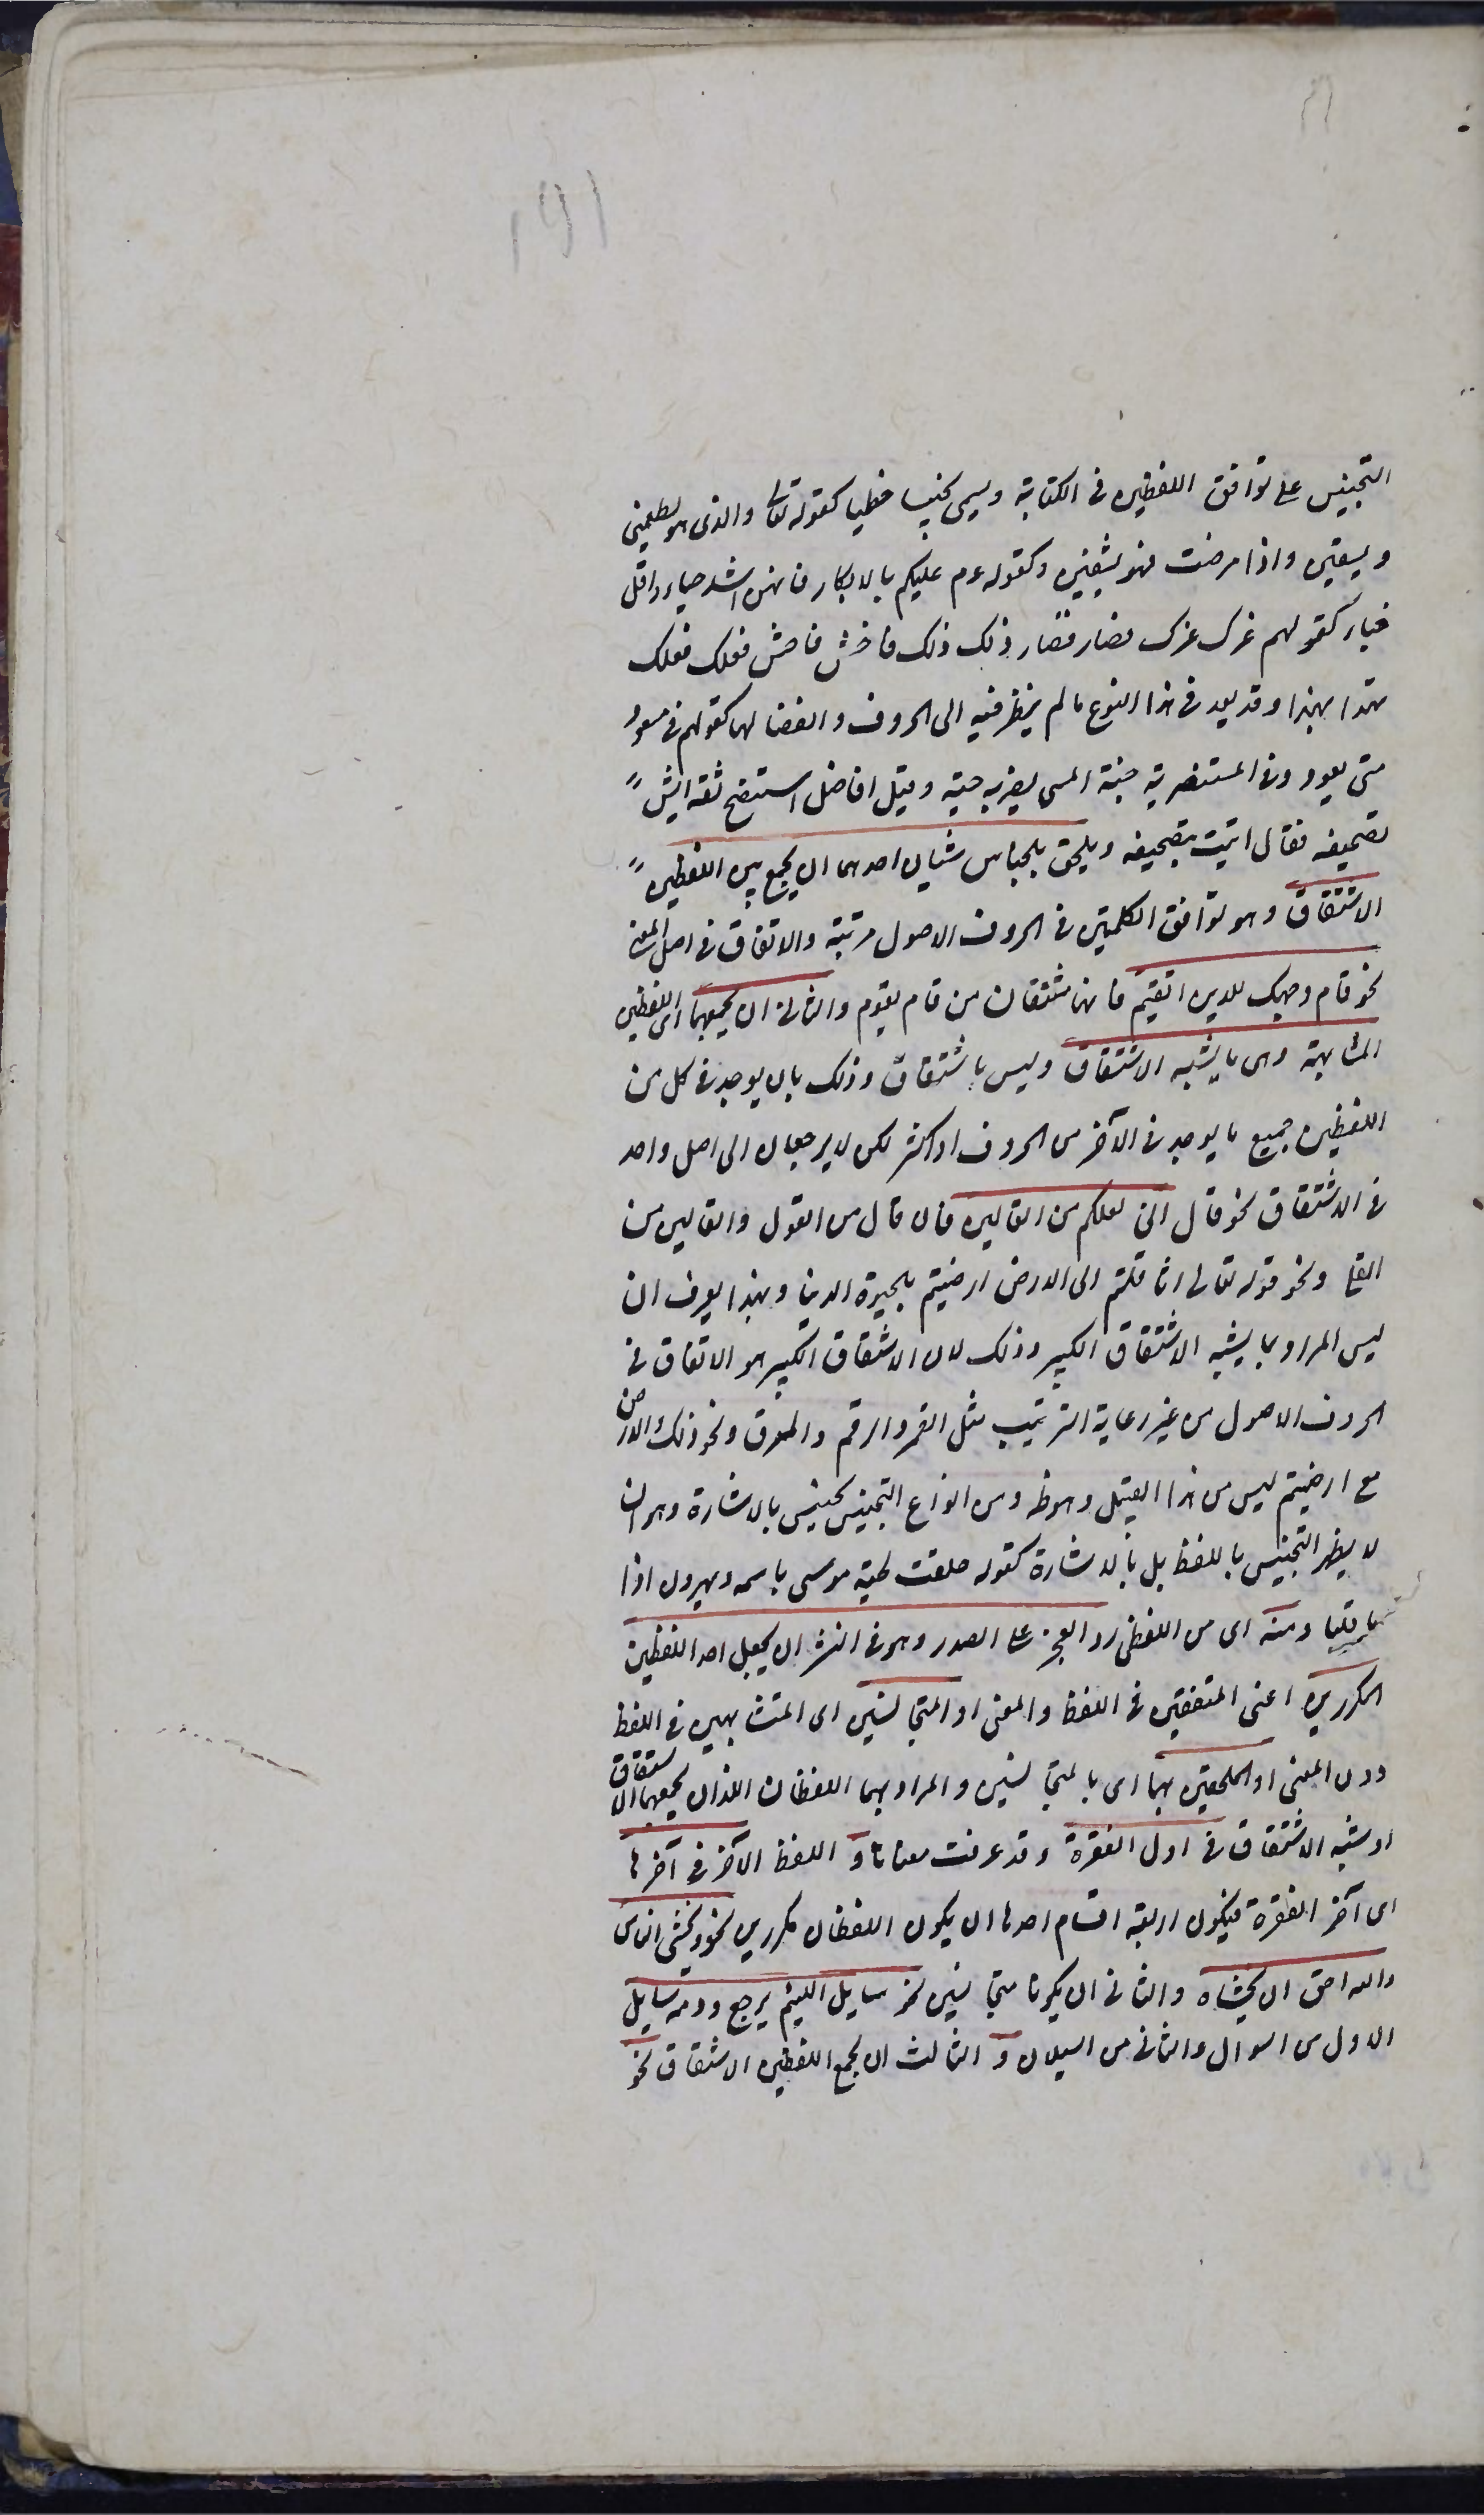 ١٩١
التجنيس على توافق اللفظين فى الكتابة ويسمى تجنيسا خطيا كقوله تعالى والذى هو يطعمنى
ويسقين واذا مرضت فهو يشفين وكقوله عم عليكم بالابكار فانهن اشد حبا واقل
خبا وكقولهم غرك عزك فصار قصار ذلك ذلك فاخش فاحش فعلك فعلك
تهدا بهذا وقد يعد فى هذا النوع ما لم ينظر فيه الى الحروف وانفصالها كقولهم فى مسعود
متى يعود وفى المستنصرية جنة المسى يضربه حية وقيل لفاضل استنصح ثقة ايش
تصحيفه فقال اتيت بتصحيفه ويلحق بالجناس شيئان احدهما ان يجمع بين اللفظين
الاشتقاق وهو توافق الكلمتين فى الحروف الاصول مرتبة والاتفاق فى اصل المعنى
نحو فاقم وجهك للدين القيم فانهما مشتقان من قام يقوم والثانى ان يجمعهما اى اللفظين
المشابهة وهى ما يشبه الاشتقاق وليس باشتقاق وذلك بان يوجد فى كل من
اللفظين جميع ما يوجد فى الآخر من الحروف او اكثر لكن لا يرجعان الى اصل واحد
فى الاشتقاق نحو قال انى لعملكم من القالين فان قال من القول والقالين من
القلى ونحو قوله تعالى اثاقلتم الى الارض ارضيتم بالحيوة الدنيا وبهذا يعرف ان
ليس المراد بما يشبه الاشتقاق الكبير وذلك لان الاشتقاق الكبير هو الاتفاق فى
الحروف الاصول من غير رعاية الترتيب مثل القمر والرقم والمرق ونحو ذلك الارض
مع ارضيتم ليس من هذا القبيل وهو ظ ومن انواع التجنيس تجنيس بالاشارة وهو ان
لا يظهر التجنيس باللفظ بل بالاشارة كقوله حلقت لحية موسى باسمه وبهرون اذا
ما قلبا ومنه اى من اللفظى رد العجز على الصدر وهو فى النثر ان يجعل احد اللفظين
المكررين اعنى المتفقين فى اللفظ والمعنى او المتجانسين اى المتشابهين فى اللفظ
دون المعنى او الملحقين بهما اى بالمتجانسين والمراد بهما اللفظان اللذان يجمعهما الاشتقاق
او شبه الاشتقاق فى اول الفقرة وقد عرفت معناها و اللفظ الآخر فى آخرها
اى آخر الفقرة فيكون اربعة اقسام احدها ان يكون اللفظان مكررين نحو وتخشى الناس
والله احق ان تخشاه والثانى ان يكونا متجانسين نحو سايل اللئيم يرجع ودمعه سايل
الاول من السوال والثانى من السيلان و الثالث ان يجمع اللفظين الاشتقاق نحو